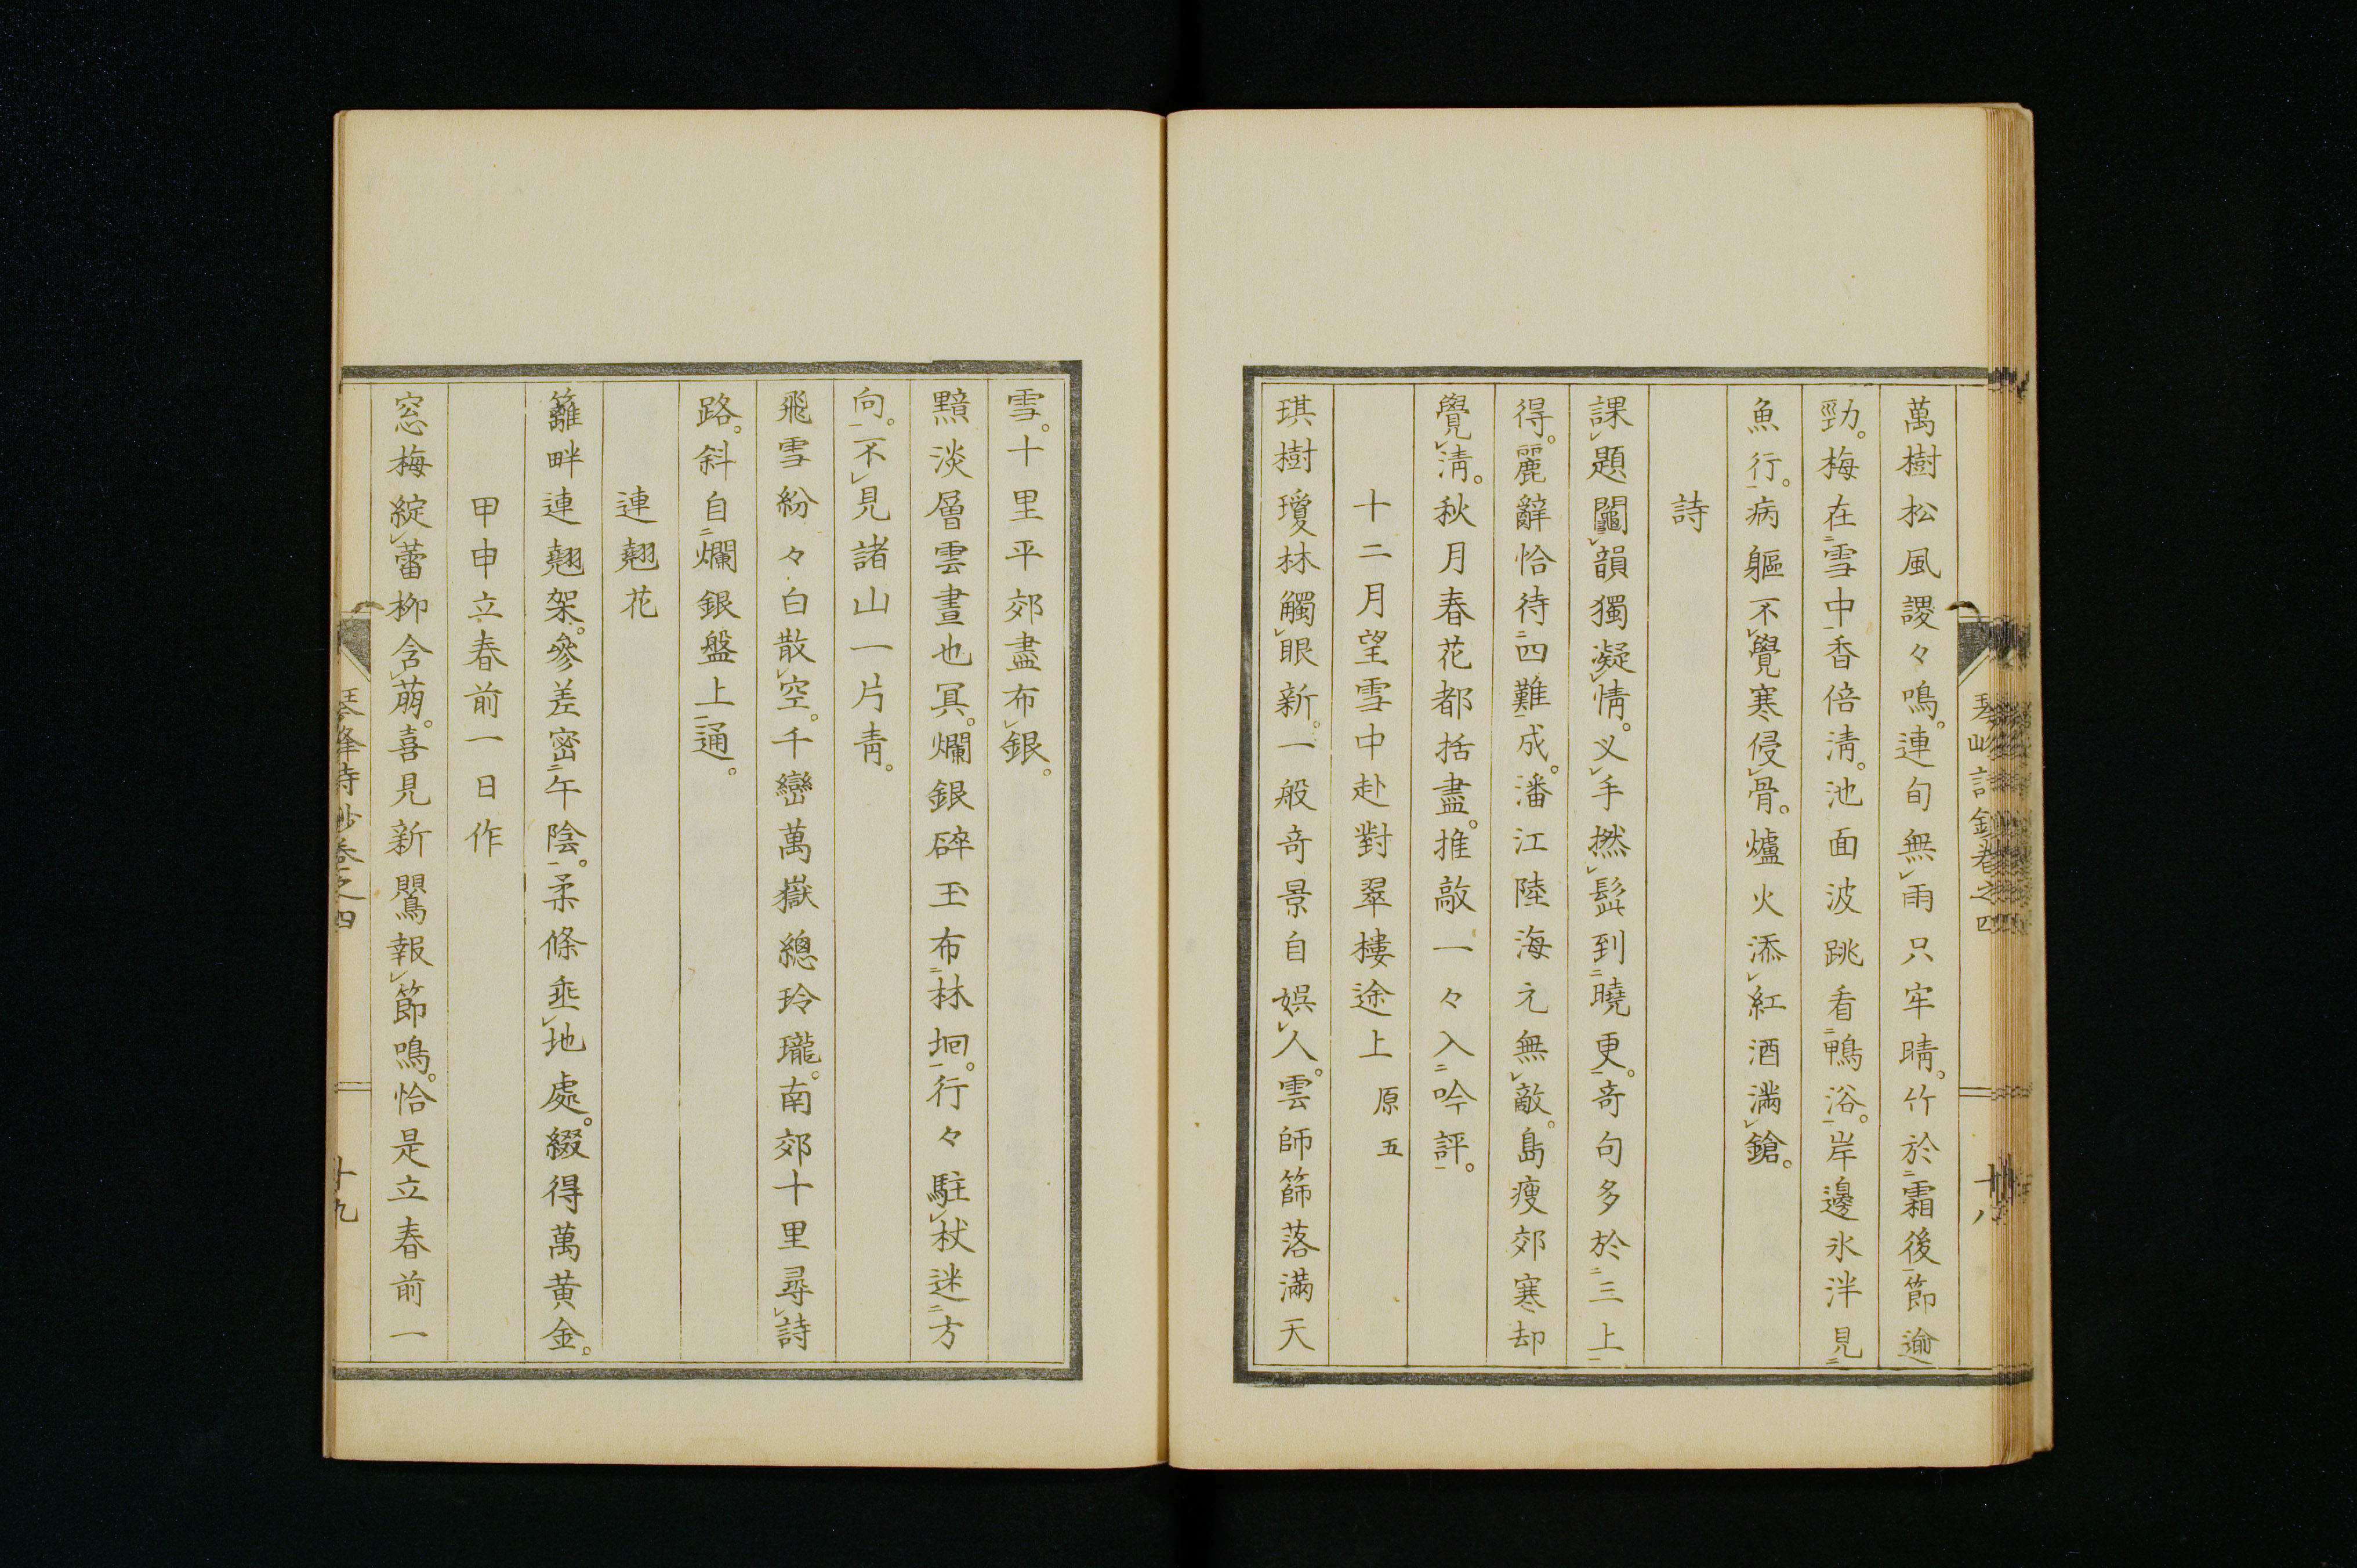 萬樹松風謖々鳴。連旬無雨只牢晴。竹於霜後節逾
勁。梅在雪中香倍淸。池面波跳看鴨浴。岸邊氷泮見
魚行。病軀不覺寒侵骨。爐火添紅酒滿鎗。
詩
課題鬮韻獨凝情。义手撚髭到曉更。奇句多於三上
得。麗辭恰待四難成。潘江陸海元無敵。島瘦郊寒却
覺淸。秋月春花都括盡。推敲一々入吟評。
十二月望雪中赴對翠樓途上 原五
琪樹瓊林觸眼新。一般奇景自娯人。雲師篩落滿天
雪。十里平郊盡布銀。
黯淡層雲晝也冥。爛銀碎玉布林坰。行々駐杖迷方
向。不見諸山一片靑。
飛雪紛々白散空。千巒萬嶽總玲瓏。南郊十里尋詩
路。斜自爛銀盤上通。
連翹花
籬畔連翹架。參差密午陰。柔條垂地處。綴得萬黃金。
甲申立春前一日作
窓梅綻蕾柳含萠。喜見新鷪報節鳴。恰是立春前一
詩鈔卷之四
十八
琴峰詩鈔卷之四
十九